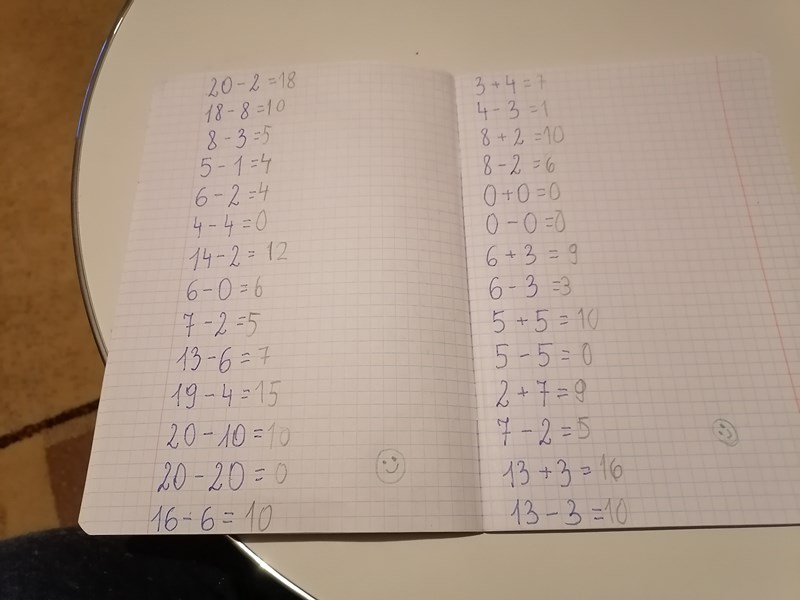 20-2=18
18-8=10
8-3=5
5-1=4
6-2=4
4-4=0
14-2=12
6-0=6
7-2=5
13-6=7
19-4=15
20-10=10
20-20=0
16-6=10
3+4=7
4-3=1
8+2=10
8-2=6
0+0=0
0-0=0
6+3=9
6-3=3
5+5=10
5-5=0
2+7=9
7-2=5
13+3=16
13-3=10